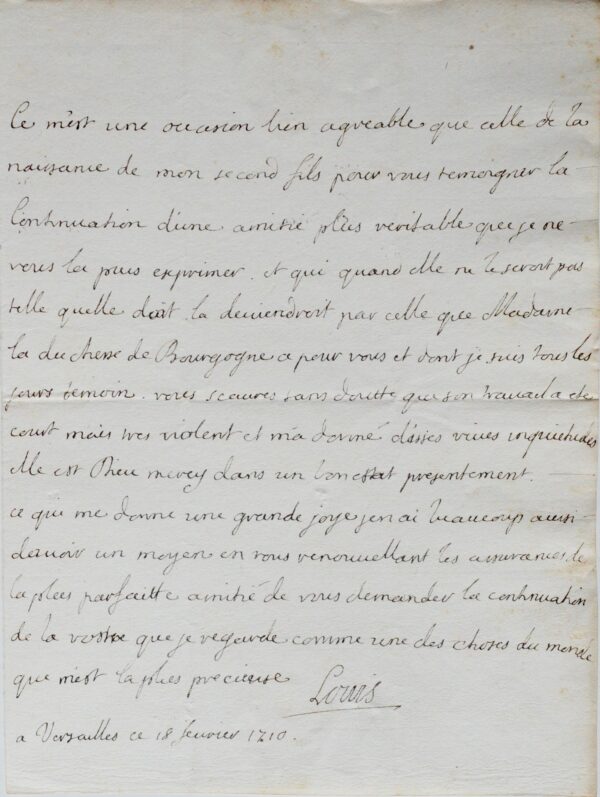 Ce m'est une occasion bien agreable que celle de la
naissance de mon second fils pour vous temoigner la
Continuation d'une amitié plus veritable que je ne
vous la puis exprimer. et qui quand elle ne le seroit pas
telle quelle doit. la deviendroit par celle que Madame
la duchesse de Bourgogne a pour vous et dont je suis tous les
jours temoin. vous scaures sans doutte que son travail a ete
court mais tres violent et m'a donné d'asses vives inquietudes
elle est Dieu mercy dans un bon estat presentement.
ce qui me donne une grande joye j'en ai beaucoup aussi
d'avoir un moyen en vous renouvellant les assurances de
la plus parfaitte amitié de vous demander la continuation
de la vostre que je regarde comme une des choses du monde
que m'est la plus precieuse
Louis
a Versailles ce 18 fevrier 1710.